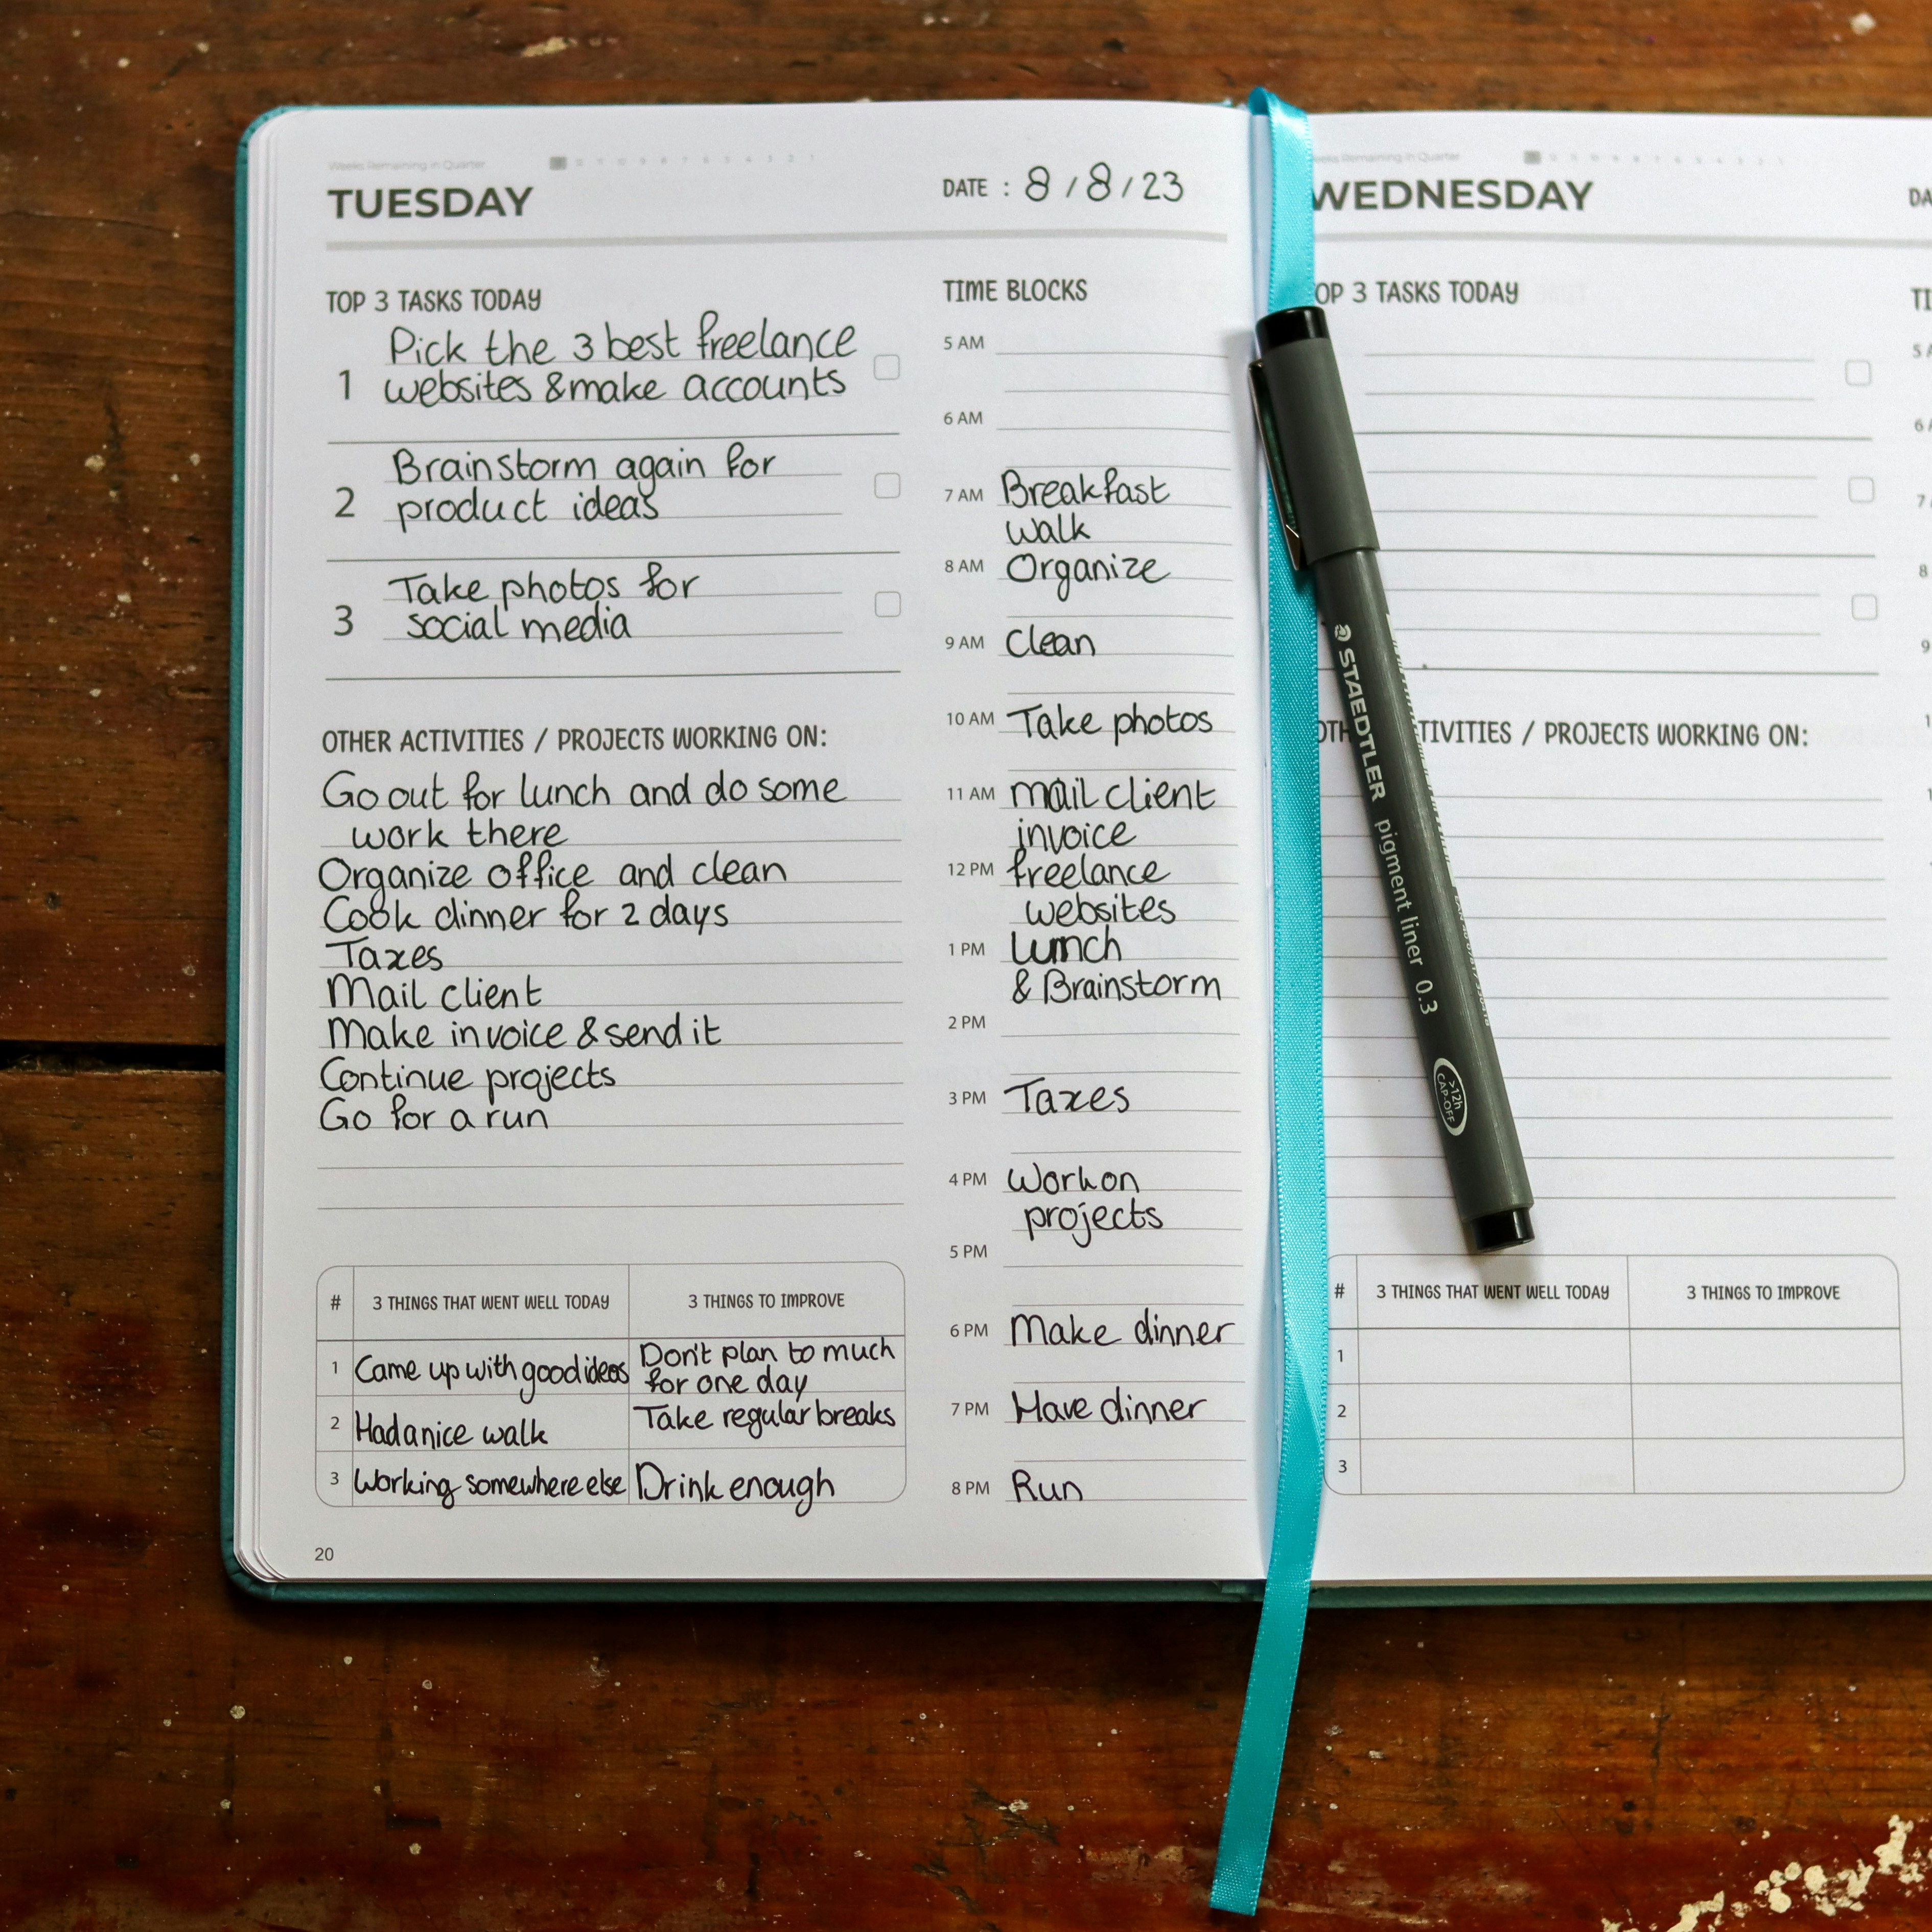 Weeks Remaining in Quarter
TUESDAY
DATE : 8 / 8 / 23
TOP 3 TASKS TODAY
1 Pick the 3 best freelance
websites & make accounts
2 Brainstorm again for
product ideas
3 Take photos for
social media
OTHER ACTIVITIES / PROJECTS WORKING ON:
Go out for lunch and do some
work there
Organize office and clean
Cook dinner for 2 days
Taxes
Mail client
Make invoice & send it
Continue projects
Go for a run
# 3 THINGS THAT WENT WELL TODAY 3 THINGS TO IMPROVE
1 Came up with good ideas Don't plan to much
for one day
2 Had a nice walk Take regular breaks
3 Working somewhere else Drink enough
20
TIME BLOCKS
5 AM
6 AM
7 AM Breakfast
walk
8 AM Organize
9 AM Clean
10 AM Take photos
11 AM mail client
invoice
12 PM freelance
websites
1 PM Lunch
& Brainstorm
2 PM
3 PM Taxes
4 PM Work on
projects
5 PM
6 PM Make dinner
7 PM Have dinner
8 PM Run
STAEDTLER pigment liner 0.3
>12h
CAP-OFF
Remaining in Quarter
WEDNESDAY
DA
OP 3 TASKS TODAY
TI
5 A
6 A
7
8
9
OTH TIVITIES / PROJECTS WORKING ON:
# 3 THINGS THAT WENT WELL TODAY 3 THINGS TO IMPROVE
1
2
3